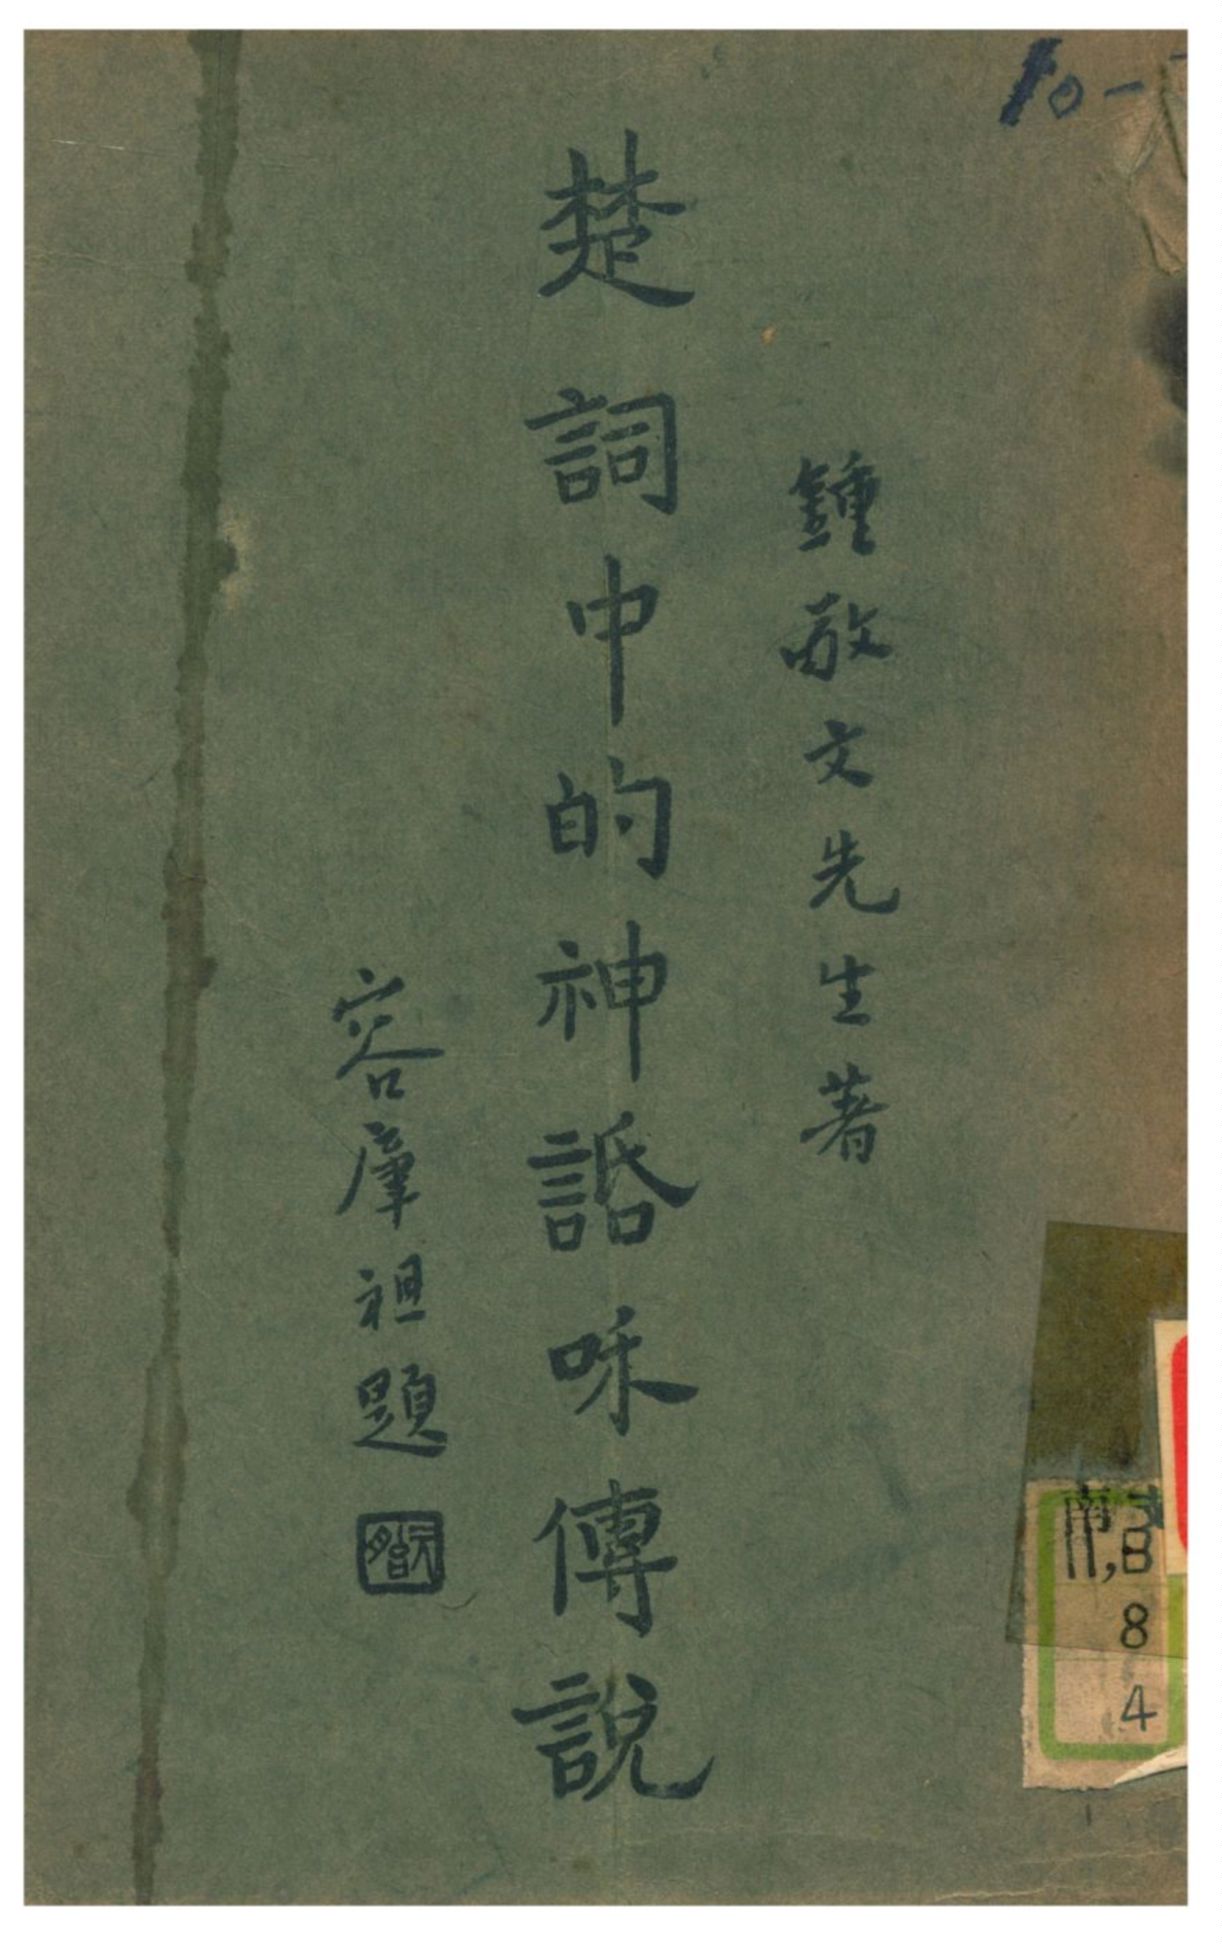 鍾敬文先生著
楚詞中的神話咊傳說
容肇祖題
10-
8
4